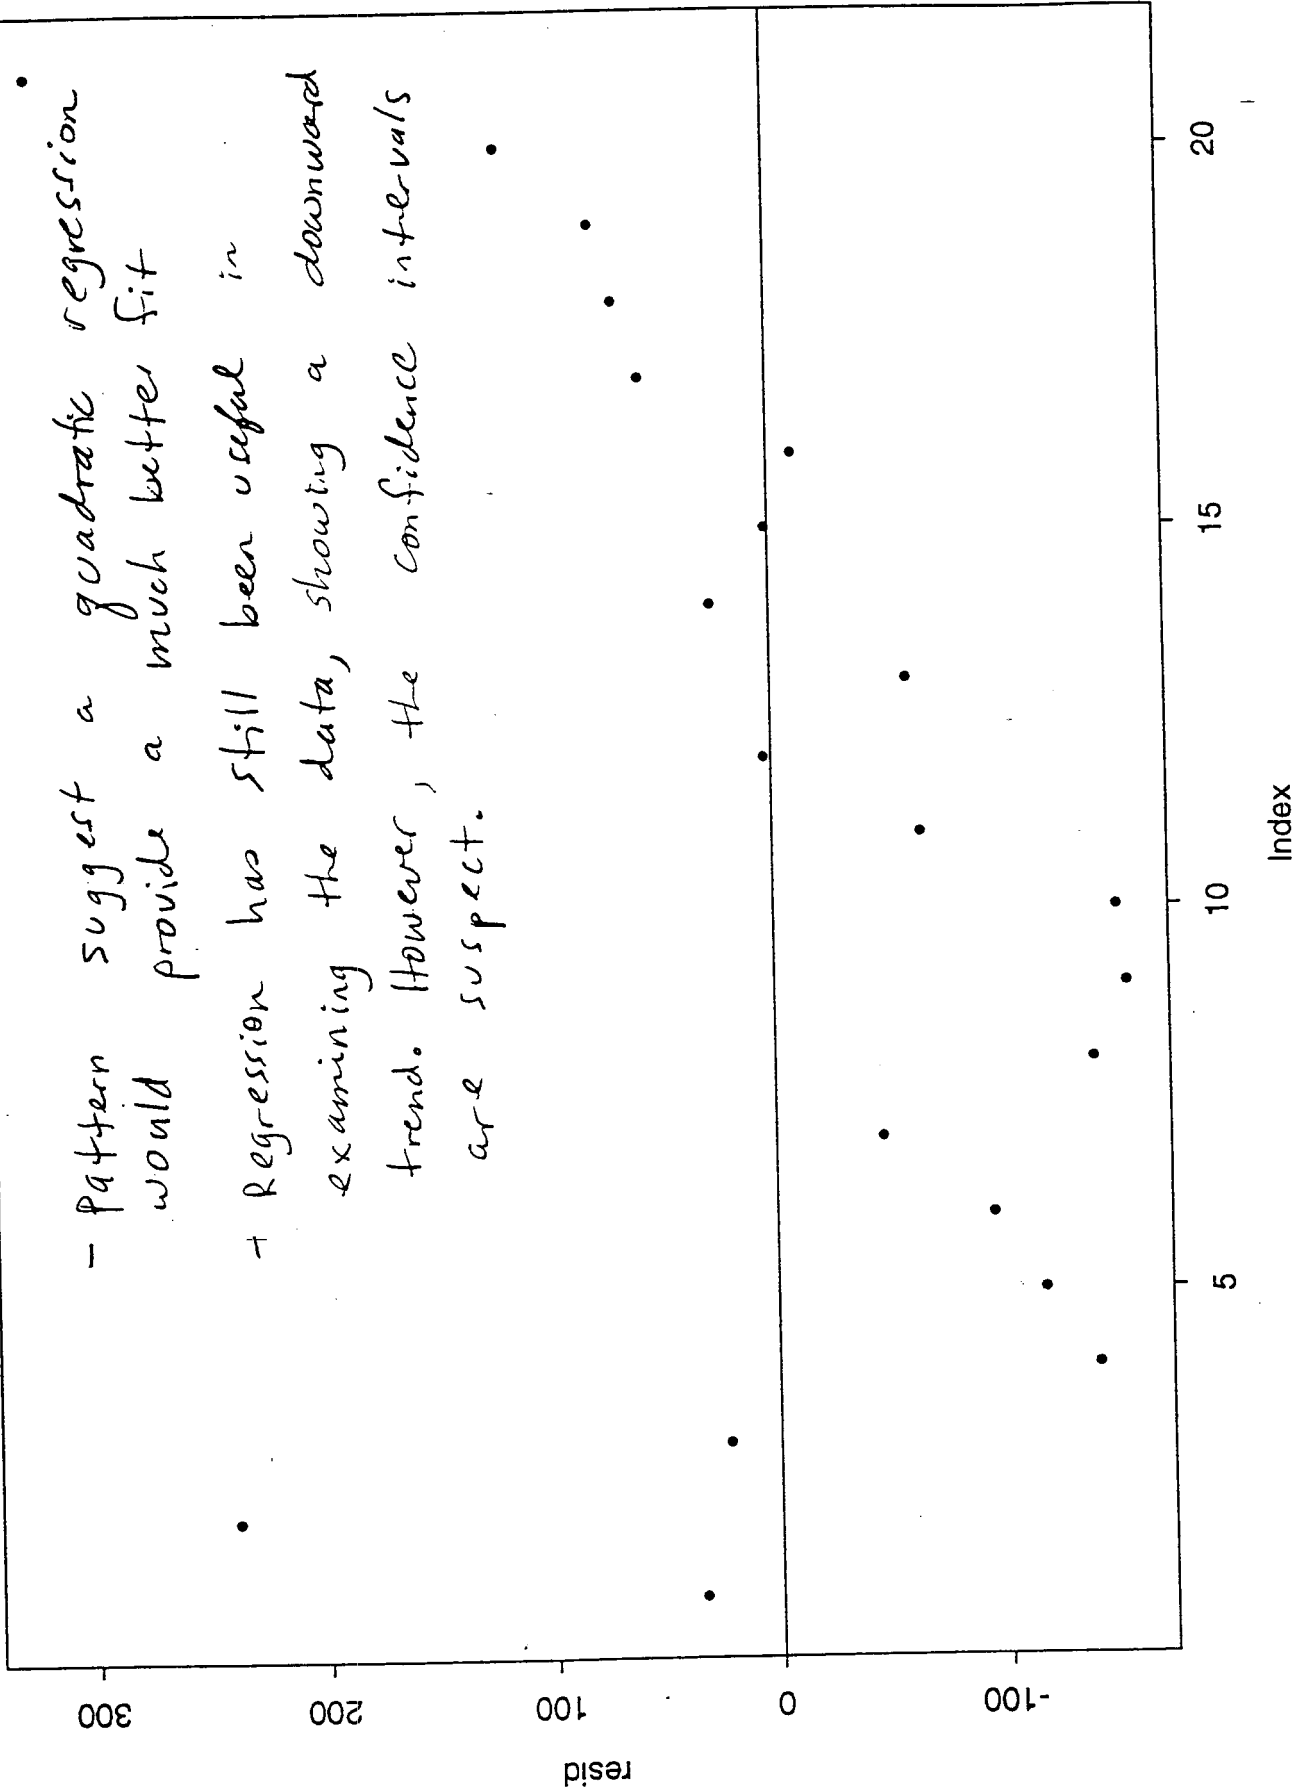 - Pattern suggest a quadratic regression
would provide a much better fit
+ Regression has still been useful in
examining the data, showing a downward
trend. However, the confidence intervals
are suspect.
resid
300
200
100
0
-100
5
10
15
20
Index